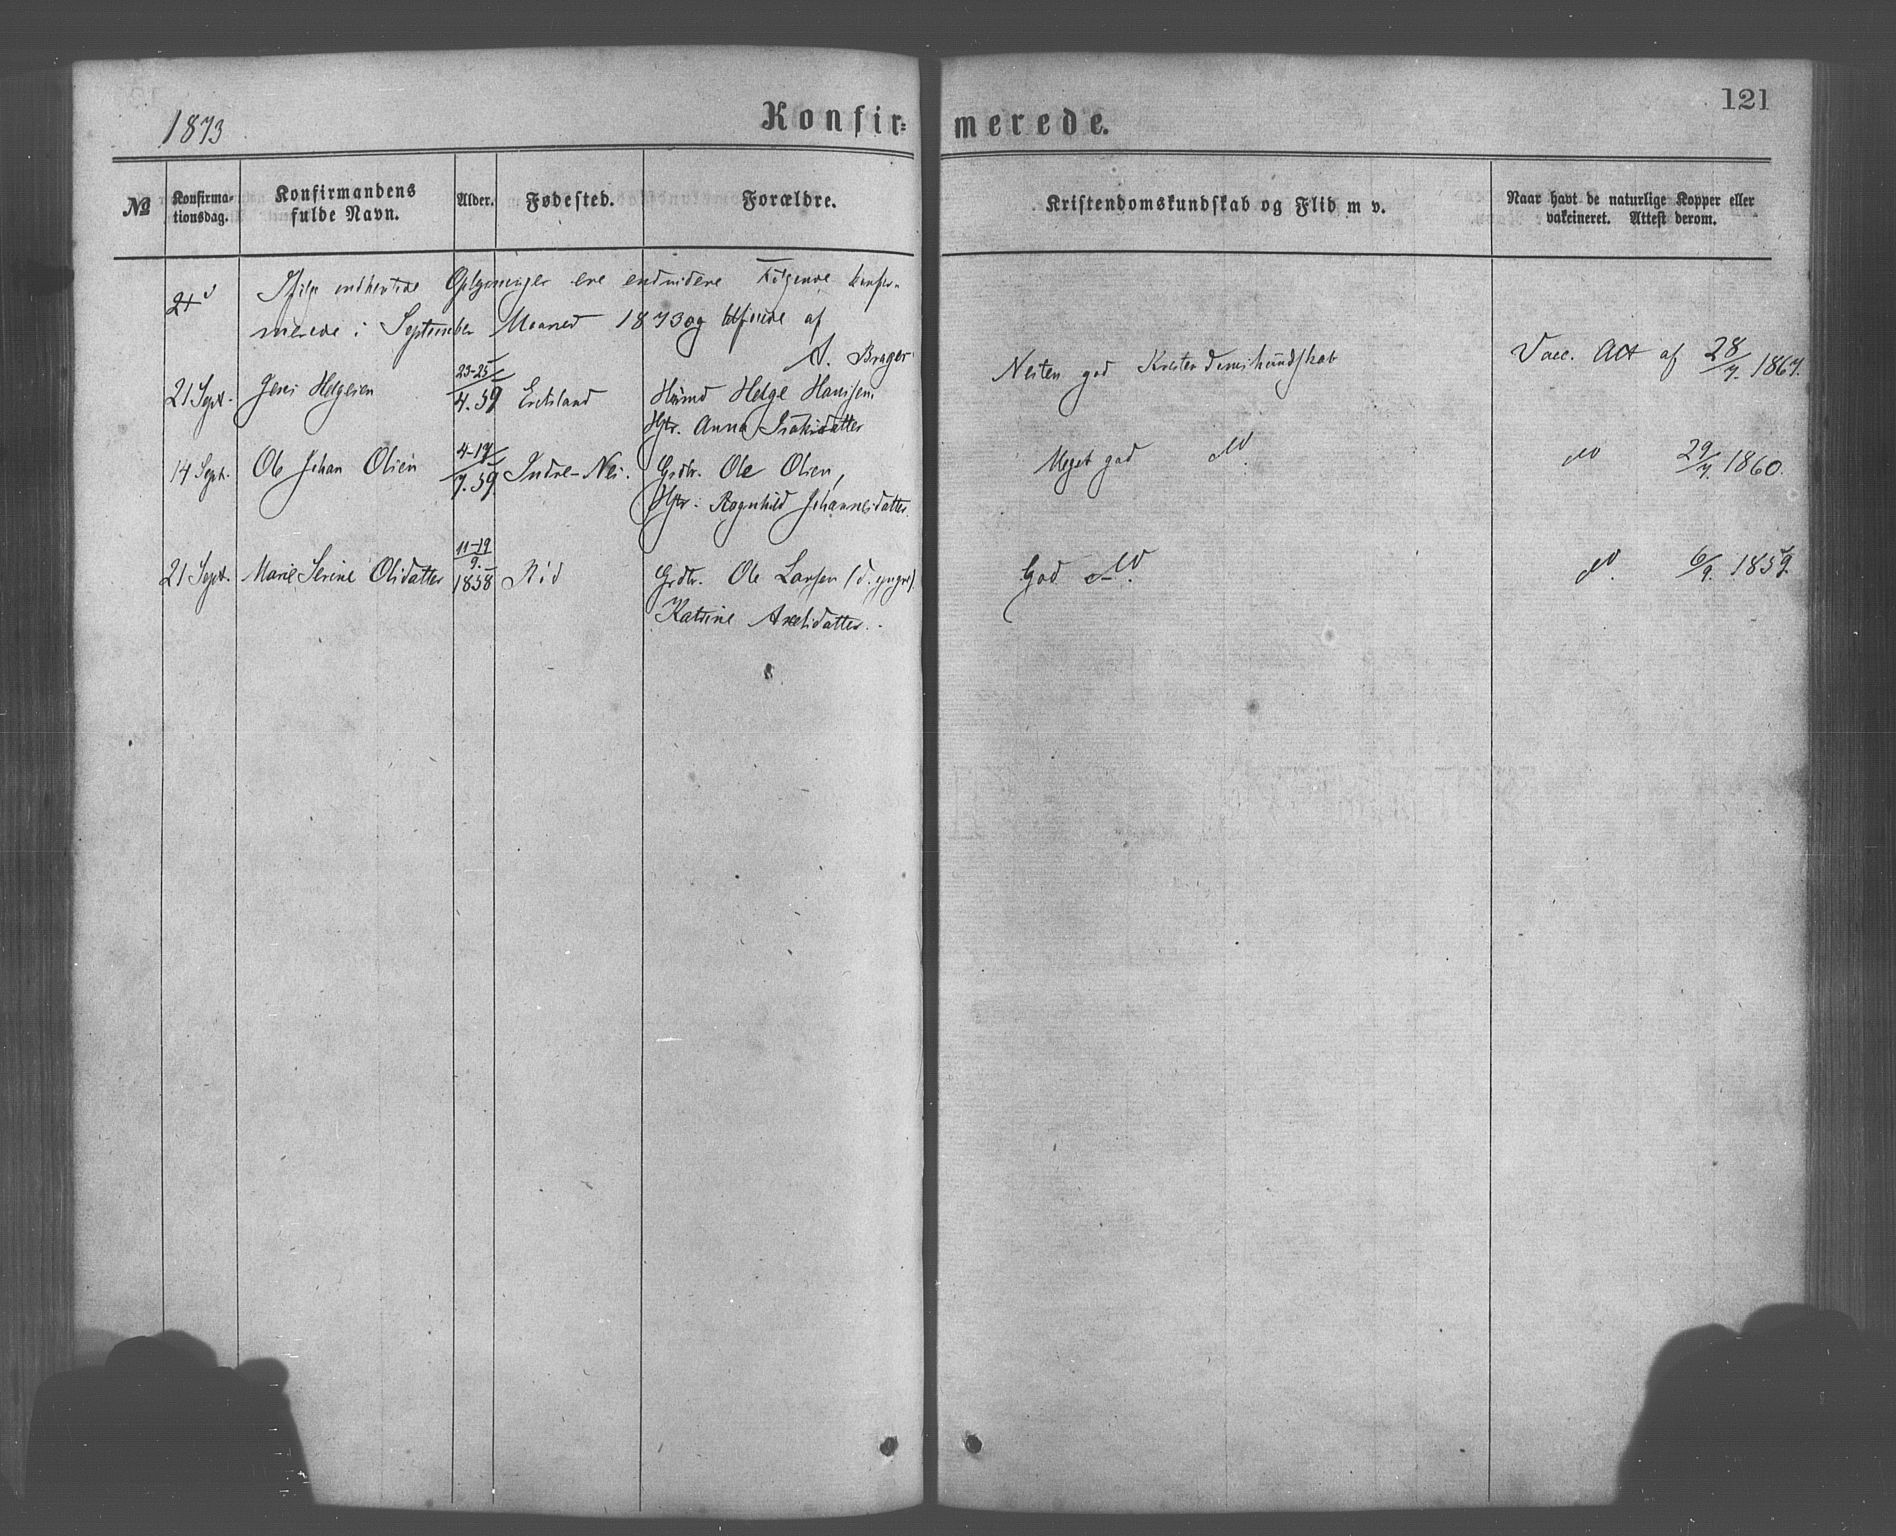 1873
Konfir-
merede.
121
No
Konfirma-
tionsdag.
Konfirmandens
fulde Navn.
Alder.
Fødested.
Forældre.
Kristendomskundskab og Flid m v.
Naar havt de naturlige Kopper eller
vakcineret. Attest derom.
indhentede Oplysninger ere endvidere Følgende konfir-
merede i September Maaned 1873 og tilføiede af
A. Brager
21 Sept. Jens Helgesen 23-25/4.59 Hmd Helge Hanssen
Nesten god Kristendomskundskab
Vacc. Att af 28/7. 1867.
Htr. Anna Isaksdatter
14 Sept. Ole Johan Olsen 4-17/7.59 Indre-Nes. Grdbr. Ole Olsen,
Meget god do
do 29/7. 1860.
Htr. Ragnhild Johannesdatter.
21 Sept. Marie Serine Olsdatter 11-19/9. 1858 Rød Grdbr. Ole Larsen (d. yngre)
God do.
do. 6/9. 1859.
Katrine Axelsdatter.